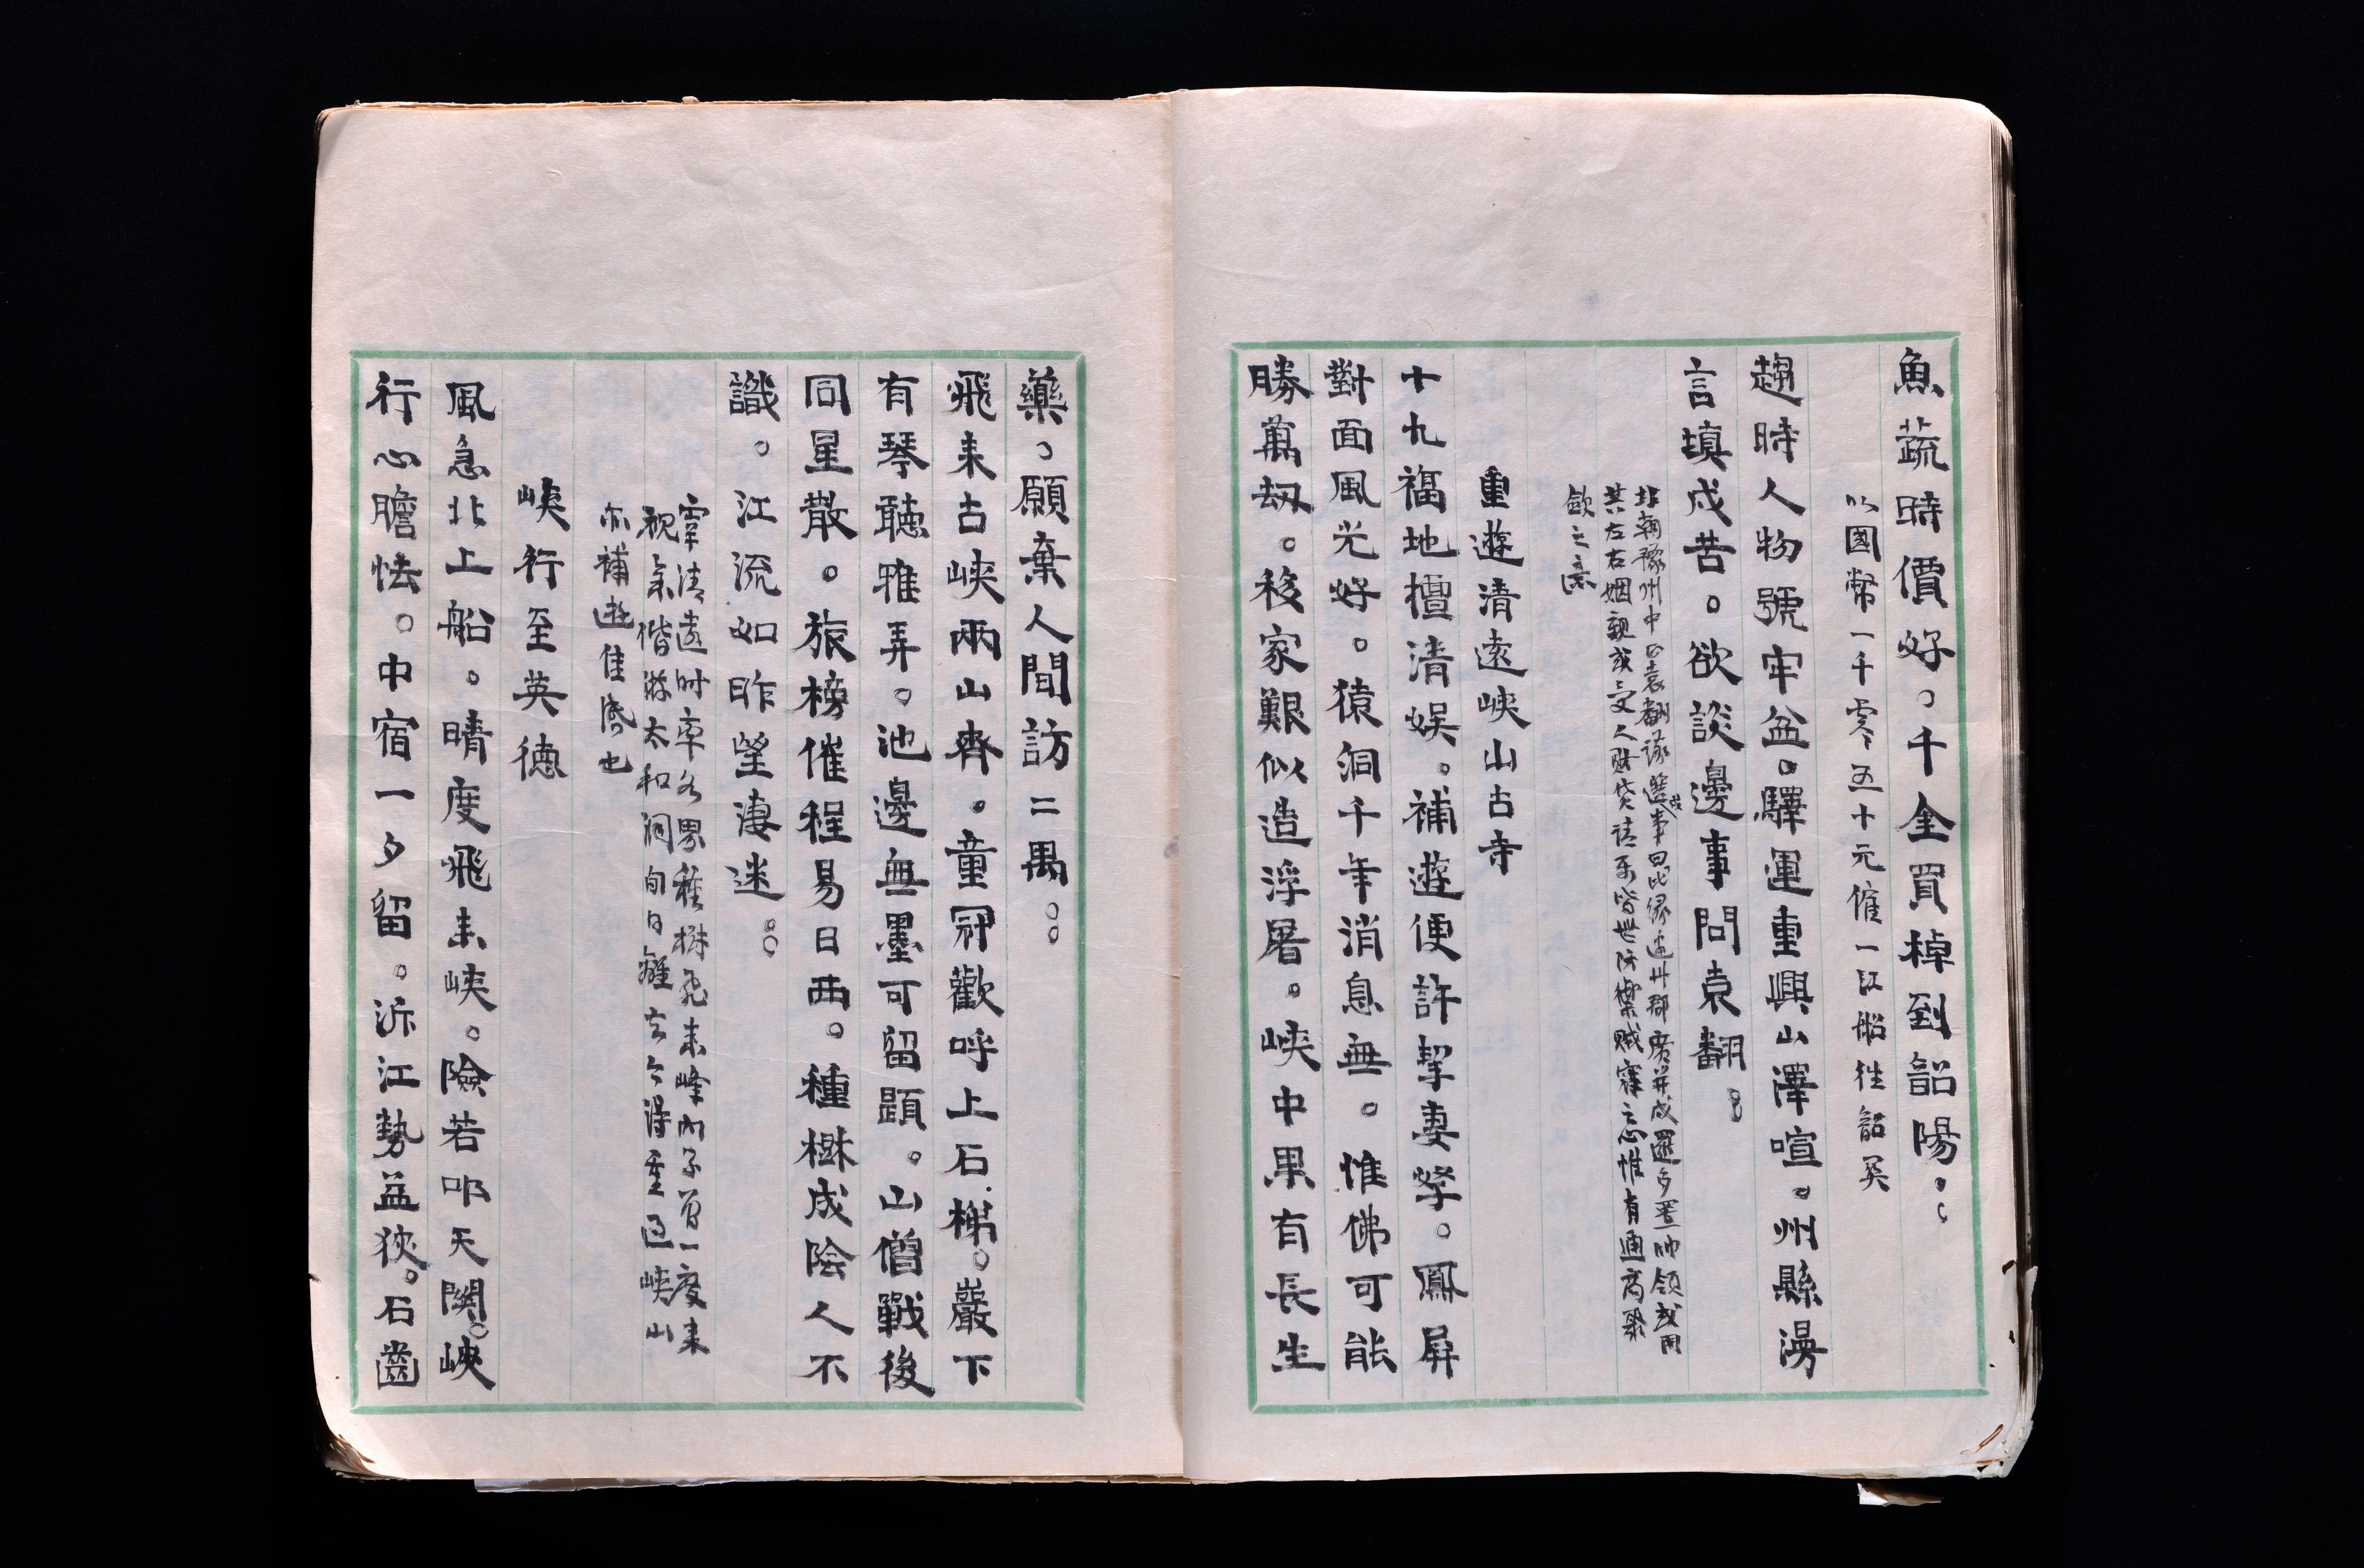 魚蔬時價好。千金買棹到韶陽。。
以國幣一千零五十元僱一江船往韶矣
趨時人物號牢盆。驛運重興山澤喧。州縣漫
言填戍苦。欲談邊事問袁翻。。
北朝豫州中正袁翻議選戍事曰比緣邊州郡廣開戍邏多置帥領或用
其左右姻親或受人財貨請屬皆無防禦賊寇之心惟有通商聚
斂之意
重遊清遠峽山古寺
十九福地擅清娛。補遊便許挈妻孥。鳳屏
對面風光好。猿洞千年消息無。惟佛可能
勝萬劫。移家艱似造浮屠。峽中果有長生
藥。願棄人間訪二禺。。
飛来古峽兩山齊。童冠歡呼上石梯。巖下
有琴聽雅弄。池邊無墨可留題。山僧戰後
同星散。旅榜催程易日西。種樹成陰人不
識。江流如昨望淒迷。。
宰清遠時率各界種樹飛来峰內子曾一度来
視余偕游太和洞旬日離去今得重過峽山
亦補遊佳處也
峽行至英德
風急北上船。晴度飛来峽。險若叩天關。峽
行心膽怯。中宿一夕留。泝江勢益狹。石齒